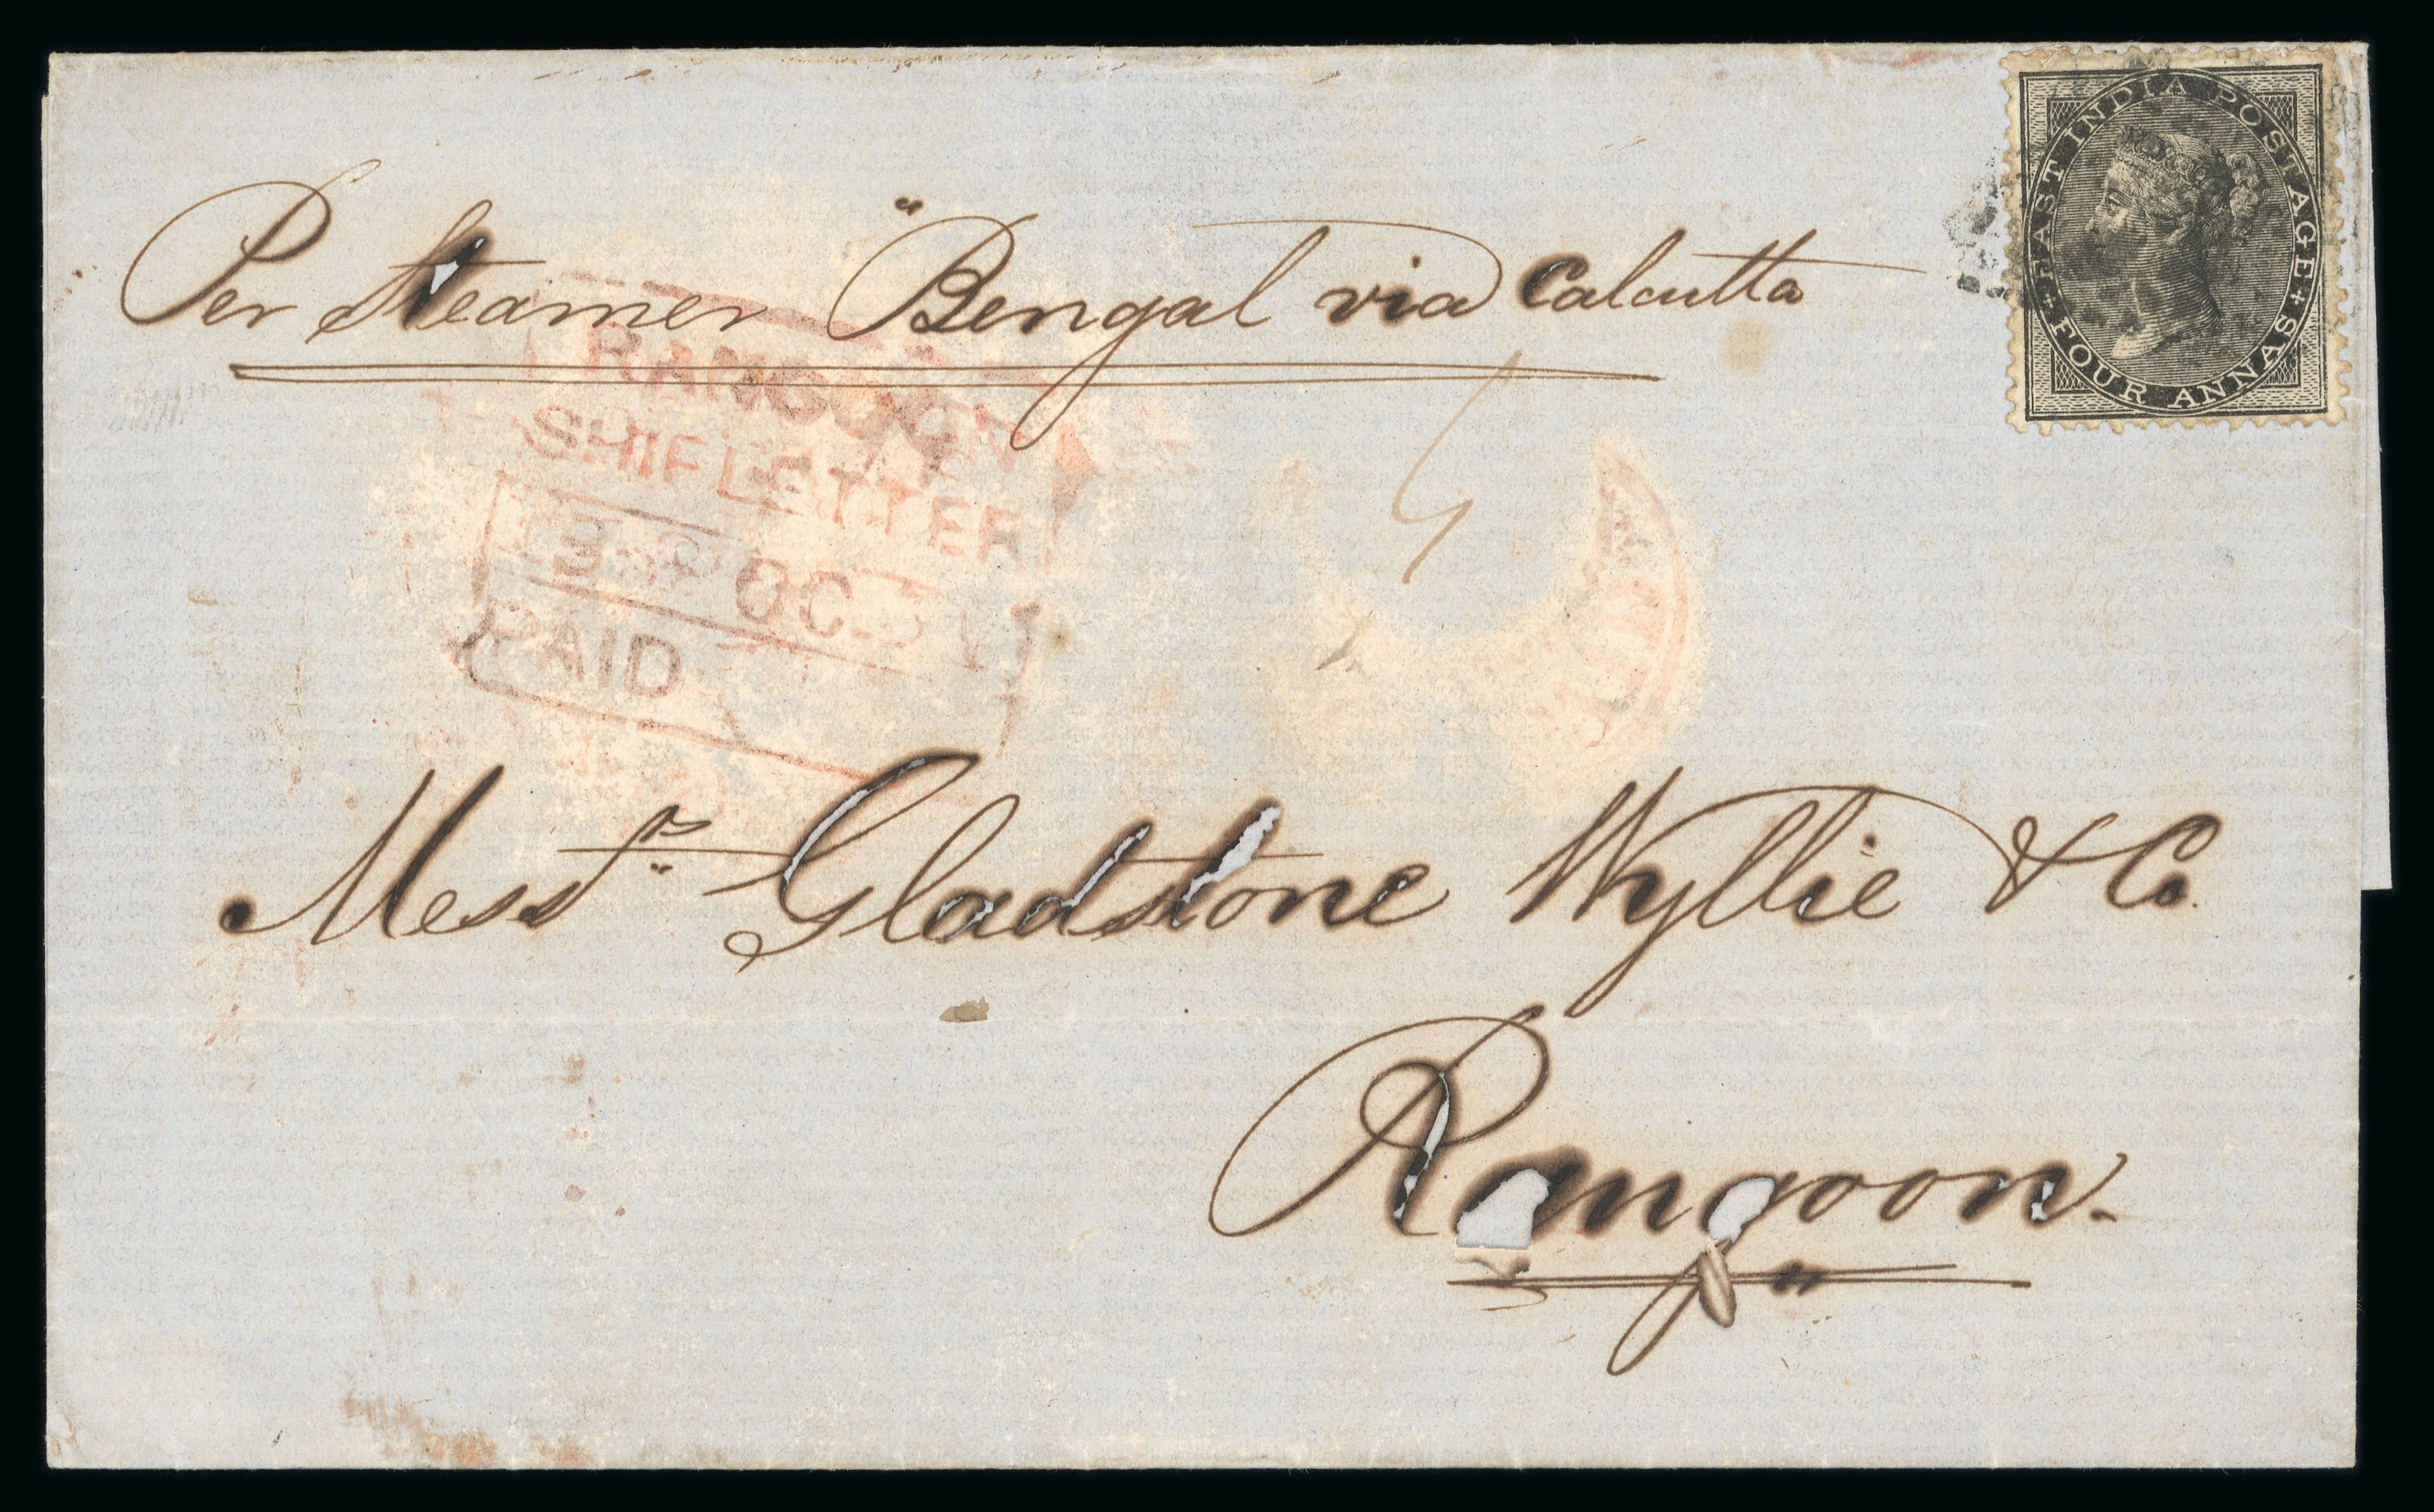 Per Steamer "Bengal via Calcutta
EAST INDIA POSTAGE
FOUR ANNAS
RANGOON
SHIP LETTER
OC
PAID
4
Messrs Gladstone Wyllie & Co.
Rangoon.